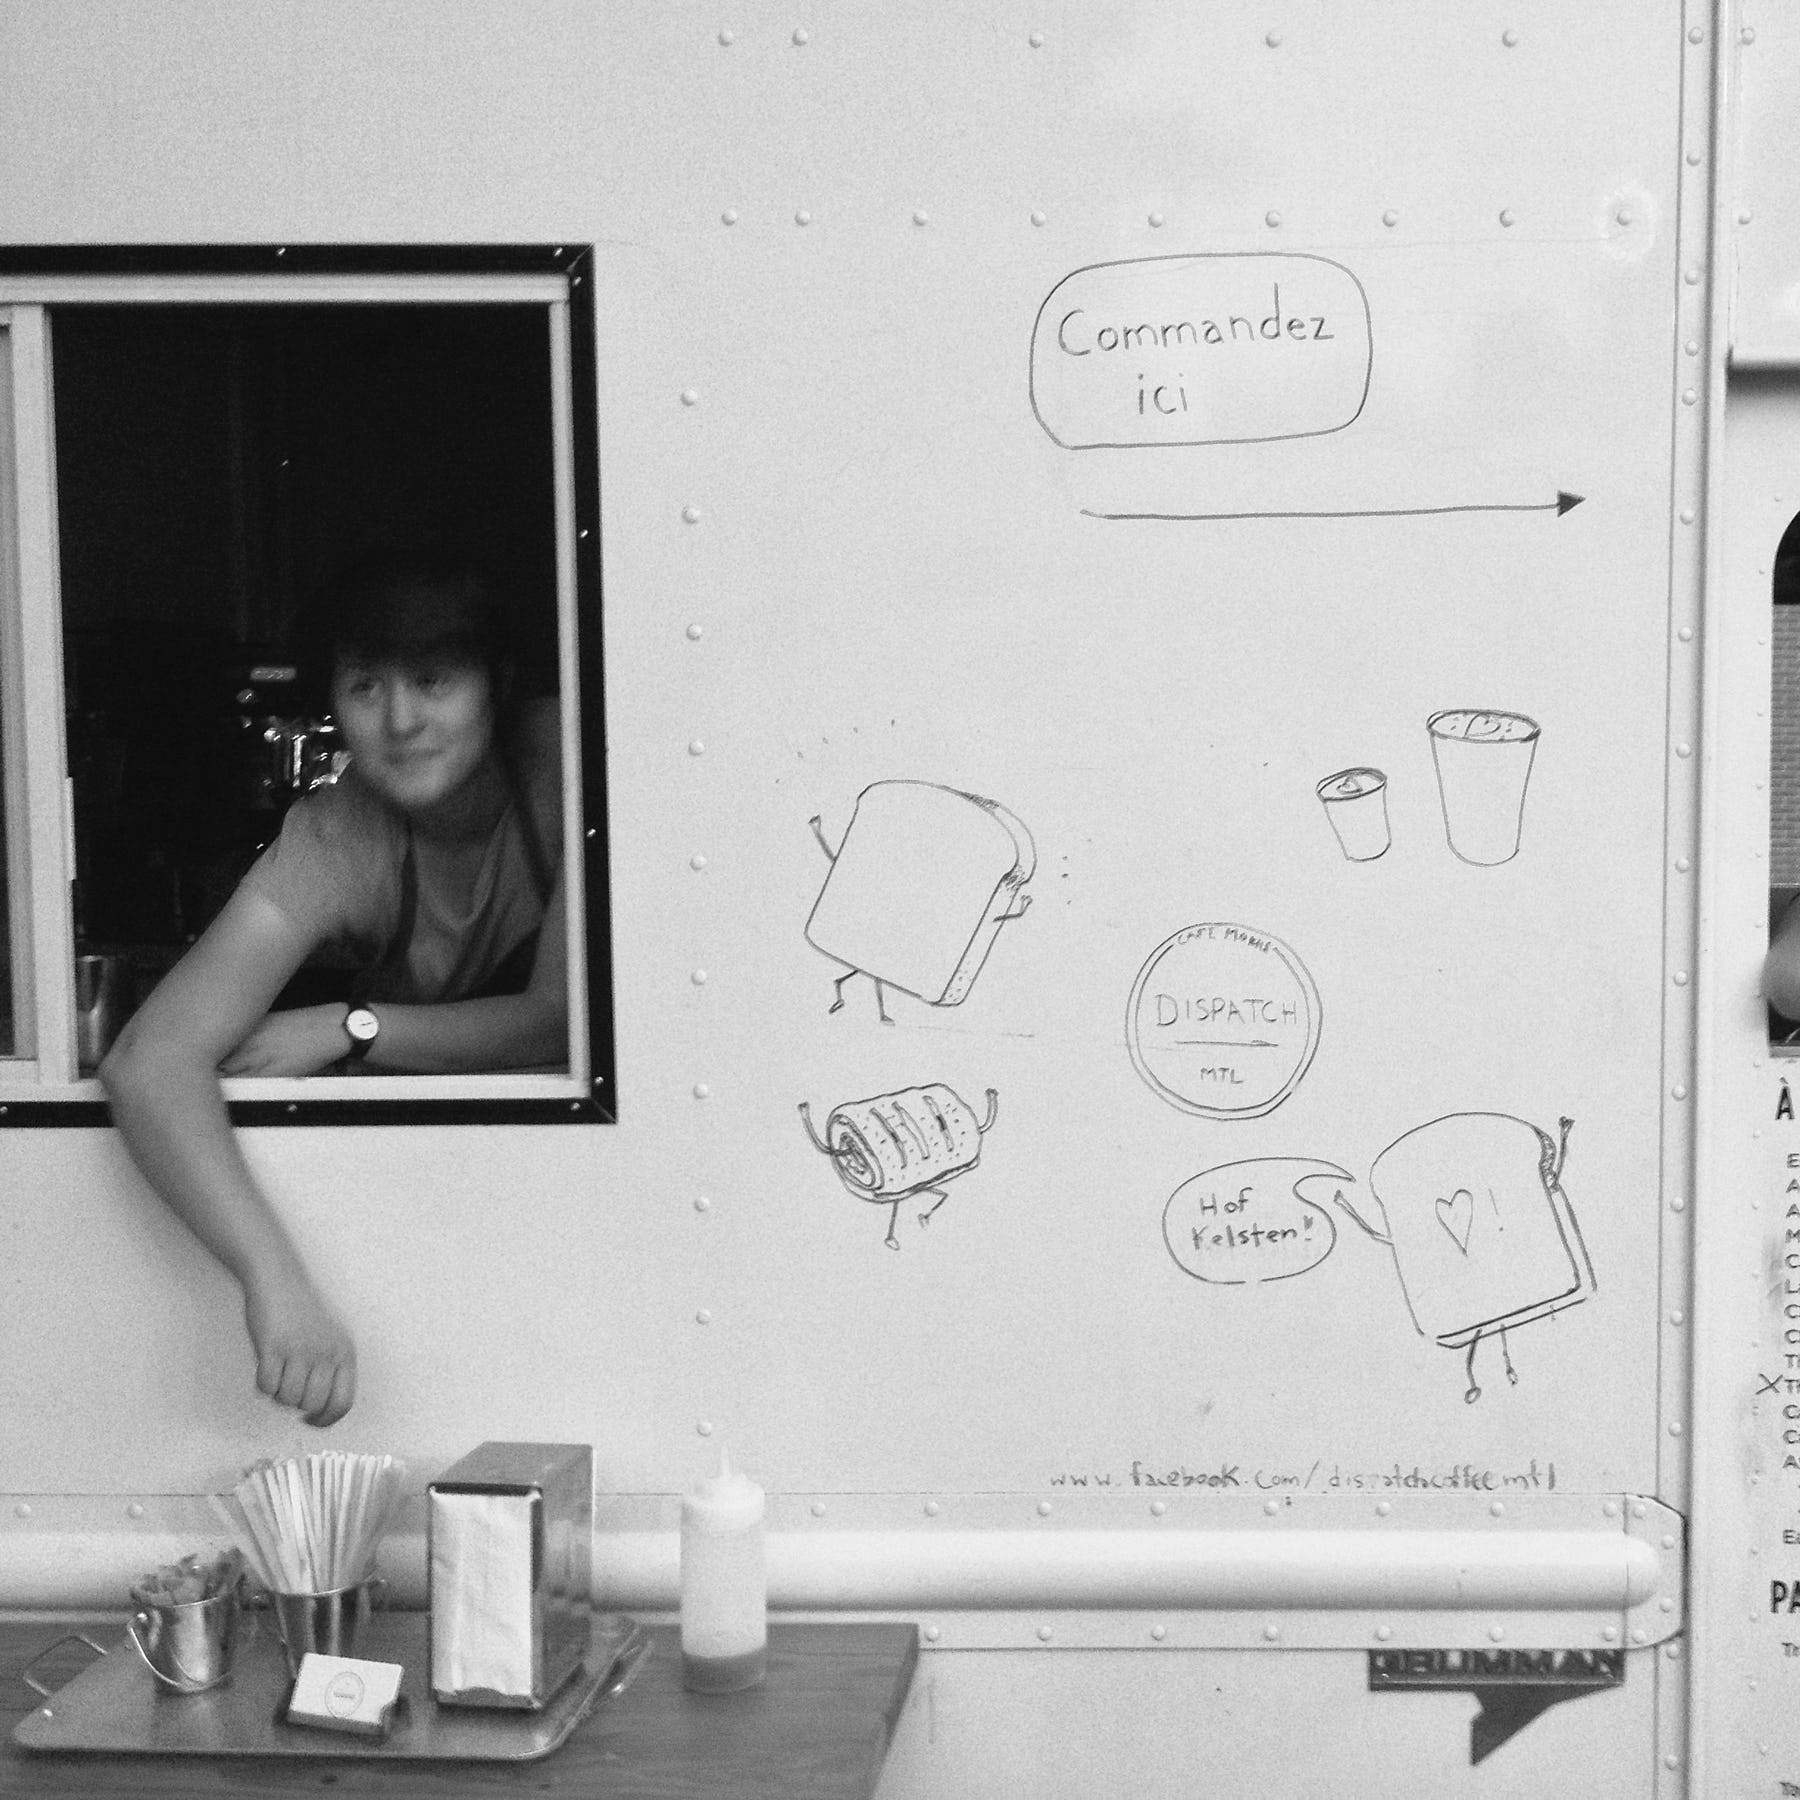 Commandez
ici
CAFE MOBILE
DISPATCH
MTL
Hof
Kelsten!
!
www.facebook.com/dispatchcoffeemtl
GRUMMAN
À
PA